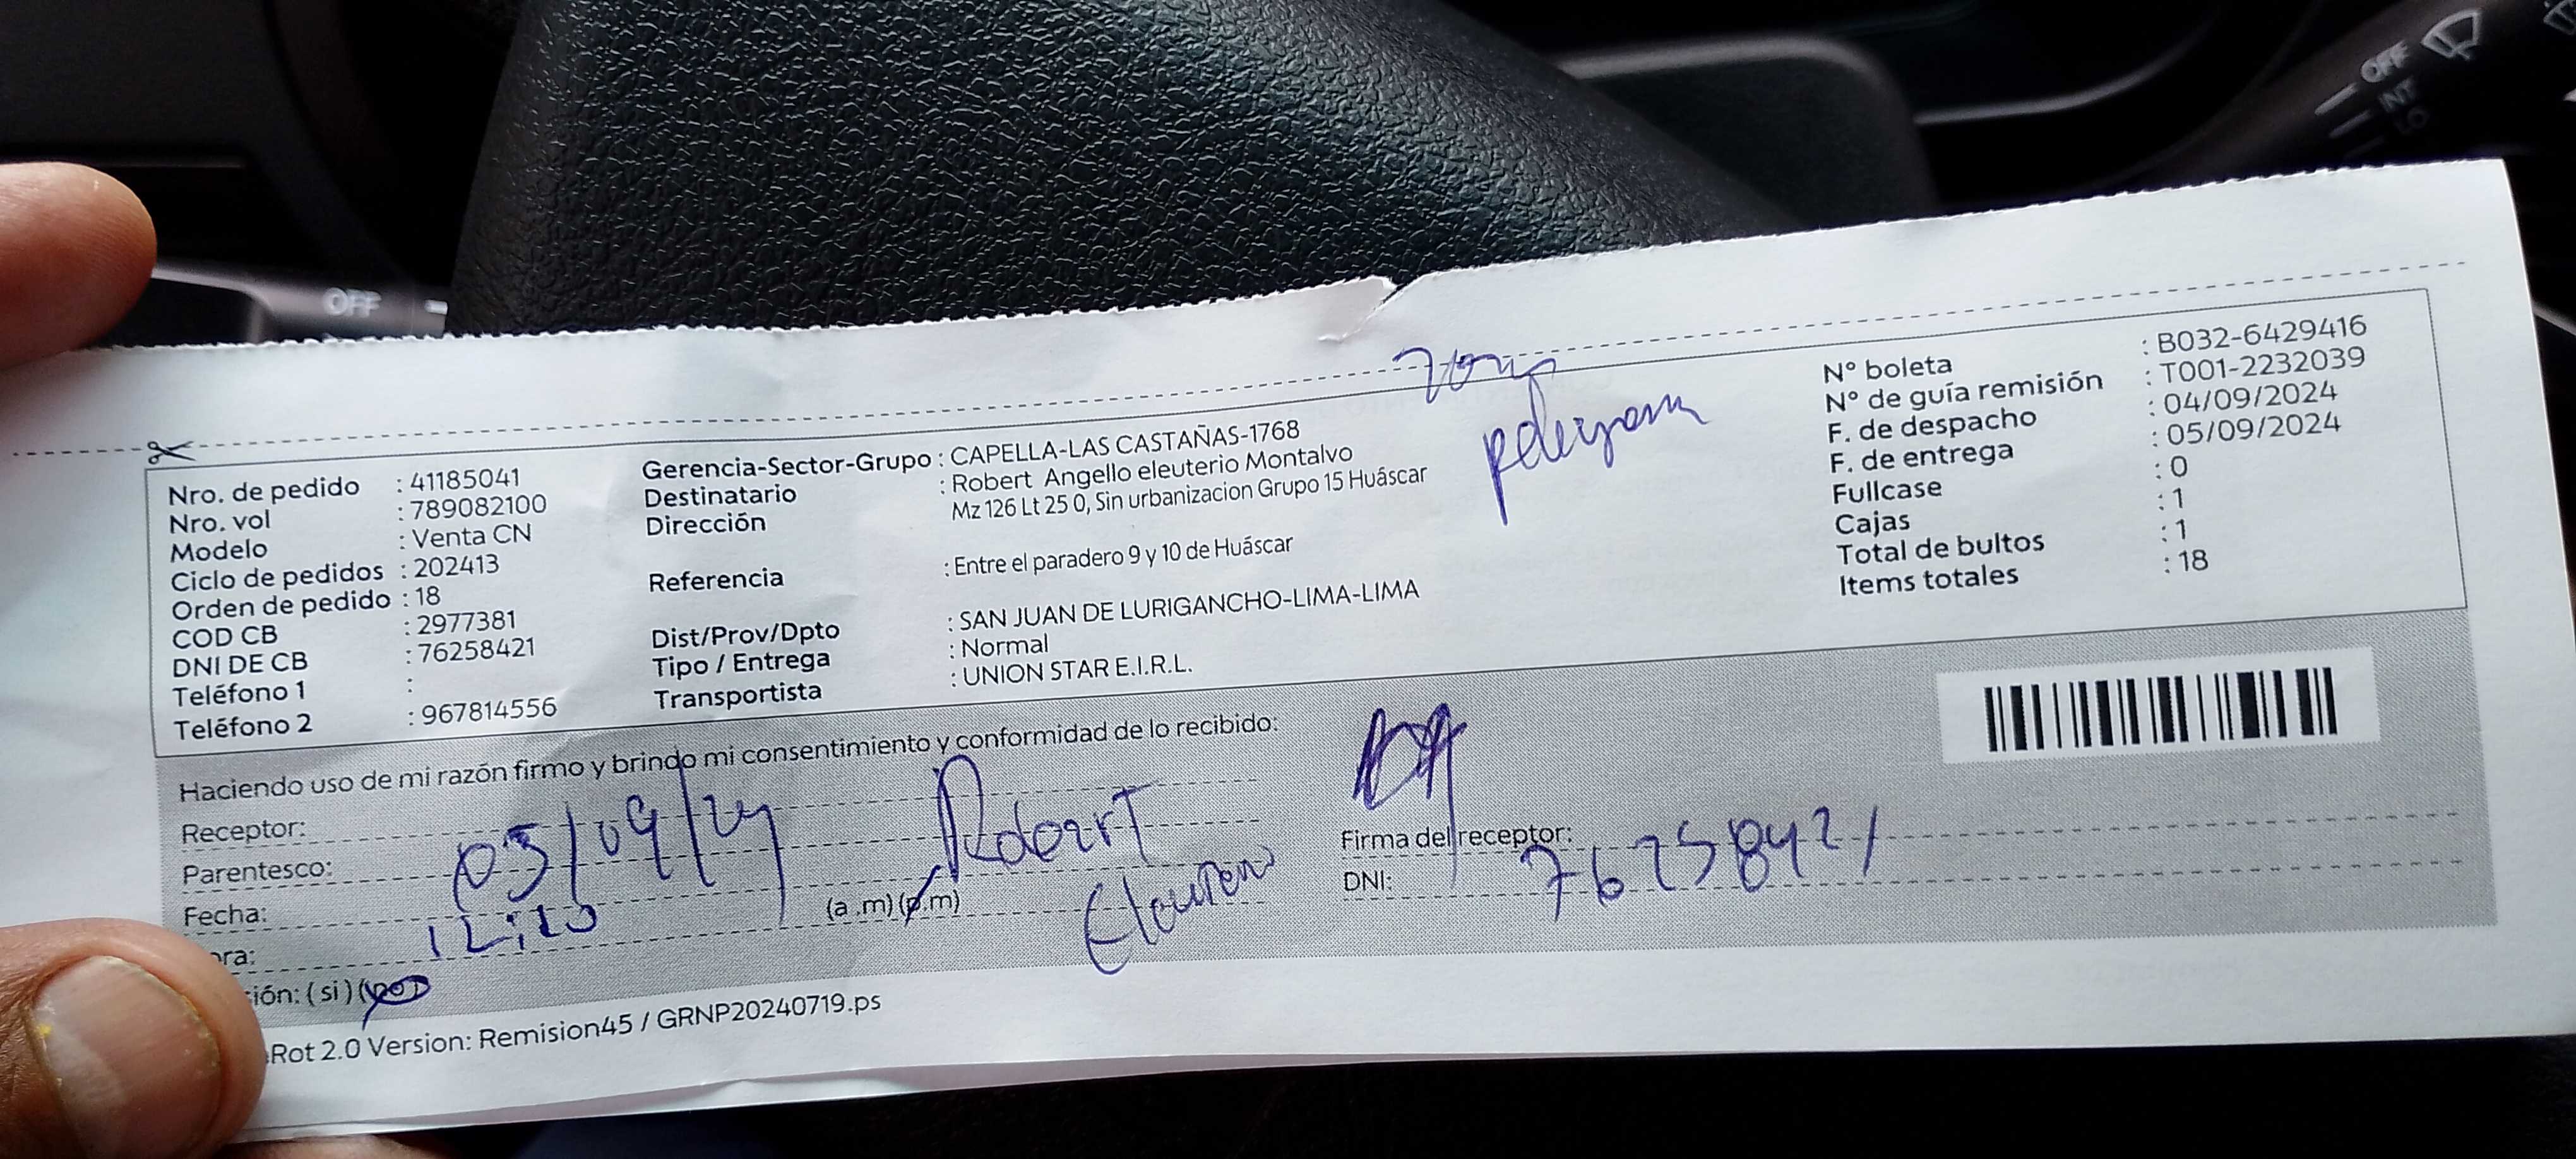 OFF
OFF
INT
LO
zona
peligrosa
Nro. de pedido : 41185041
Nro. vol : 789082100
Modelo : Venta CN
Ciclo de pedidos : 202413
Orden de pedido : 18
COD CB : 2977381
DNI DE CB : 76258421
Teléfono 1 :
Teléfono 2 : 967814556
Gerencia-Sector-Grupo : CAPELLA-LAS CASTAÑAS-1768
Destinatario : Robert Angello eleuterio Montalvo
Dirección Mz 126 Lt 25 0, Sin urbanizacion Grupo 15 Huáscar
Referencia : Entre el paradero 9 y 10 de Huáscar
Dist/Prov/Dpto : SAN JUAN DE LURIGANCHO-LIMA-LIMA
Tipo / Entrega : Normal
Transportista : UNION STAR E.I.R.L.
N° boleta : B032-6429416
N° de guía remisión : T001-2232039
F. de despacho : 04/09/2024
F. de entrega : 05/09/2024
Fullcase : 0
Cajas : 1
Total de bultos : 1
Items totales : 18
Haciendo uso de mi razón firmo y brindo mi consentimiento y conformidad de lo recibido:
Receptor: Robert
Parentesco:
Fecha: 05/09/24
ora: 12:10 (a .m) (p.m)
ión: ( si ) (no)
Firma del receptor:
DNI: 76258421
Rot 2.0 Version: Remision45 / GRNP20240719.ps